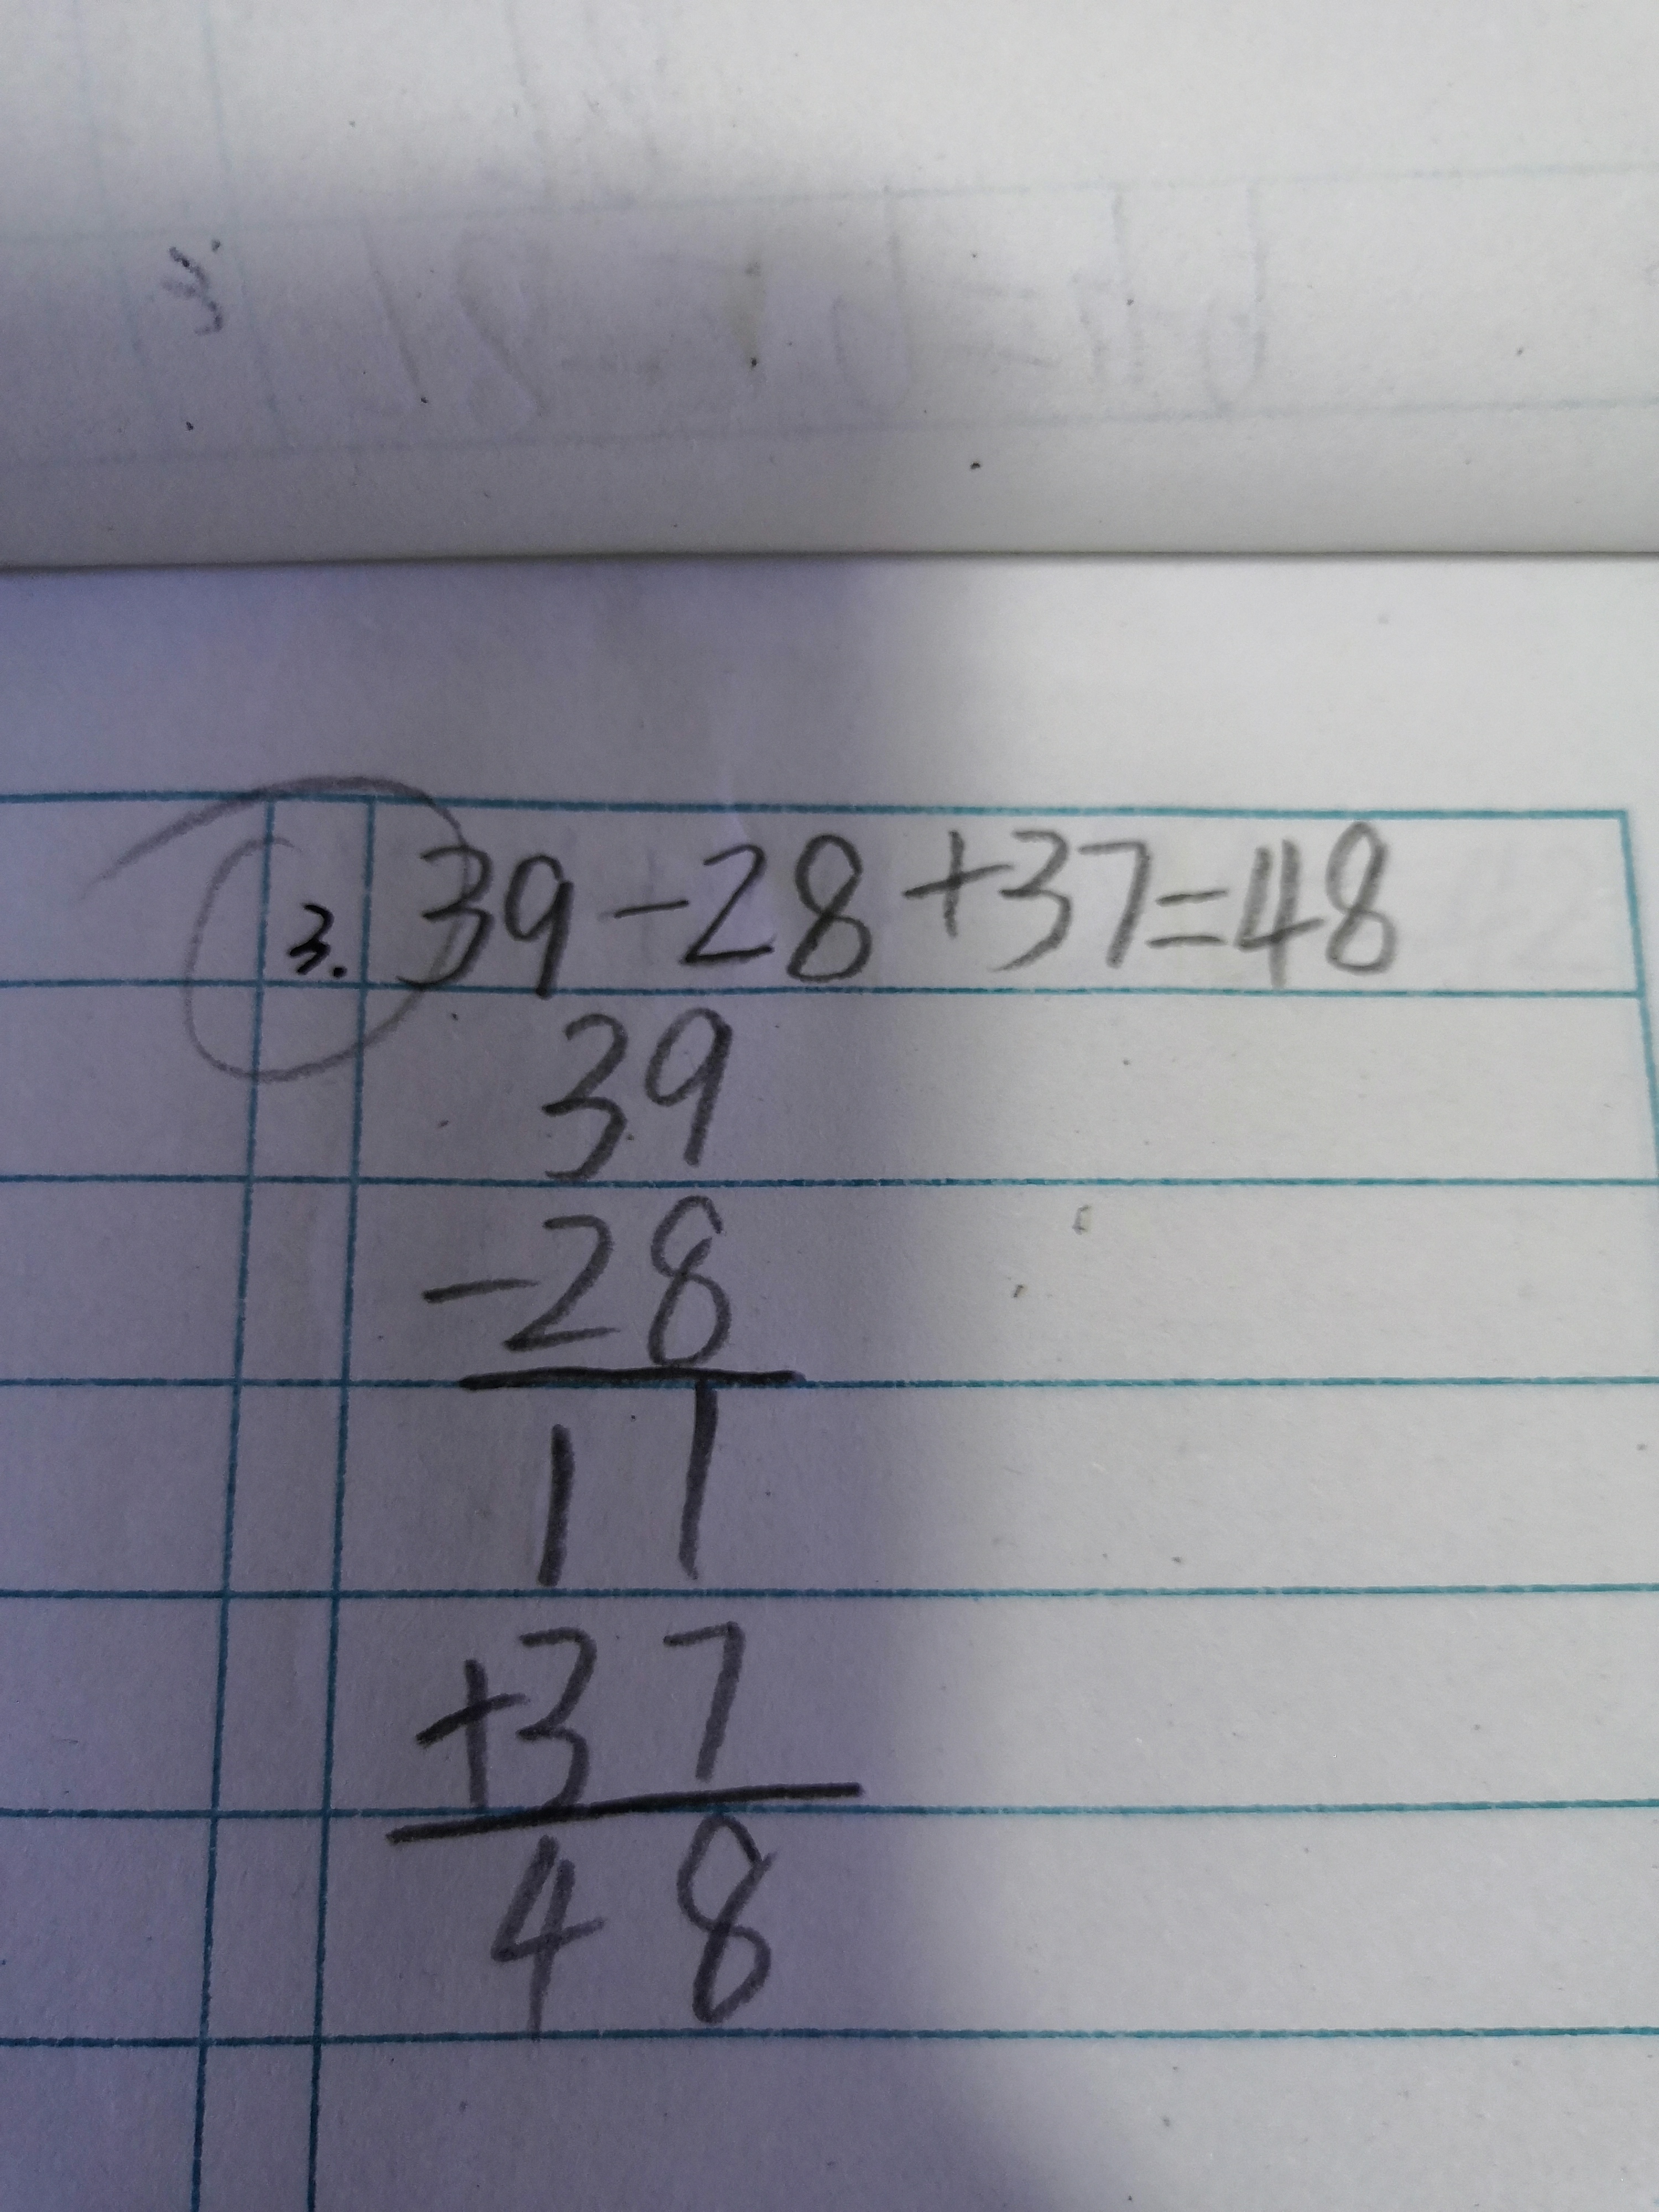 3. 39-28+37=48
39
-28
11
+37
48